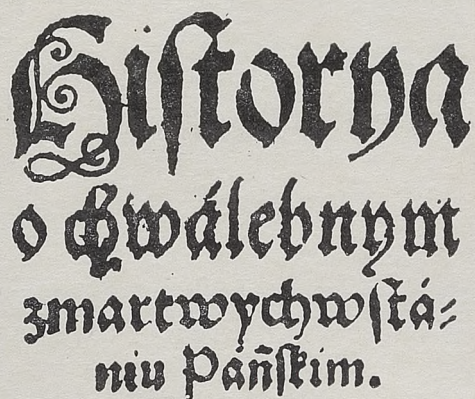 Hiſtorya
o Chwálebnym
zmartwychwſtá⸗
niu Páńſkim.